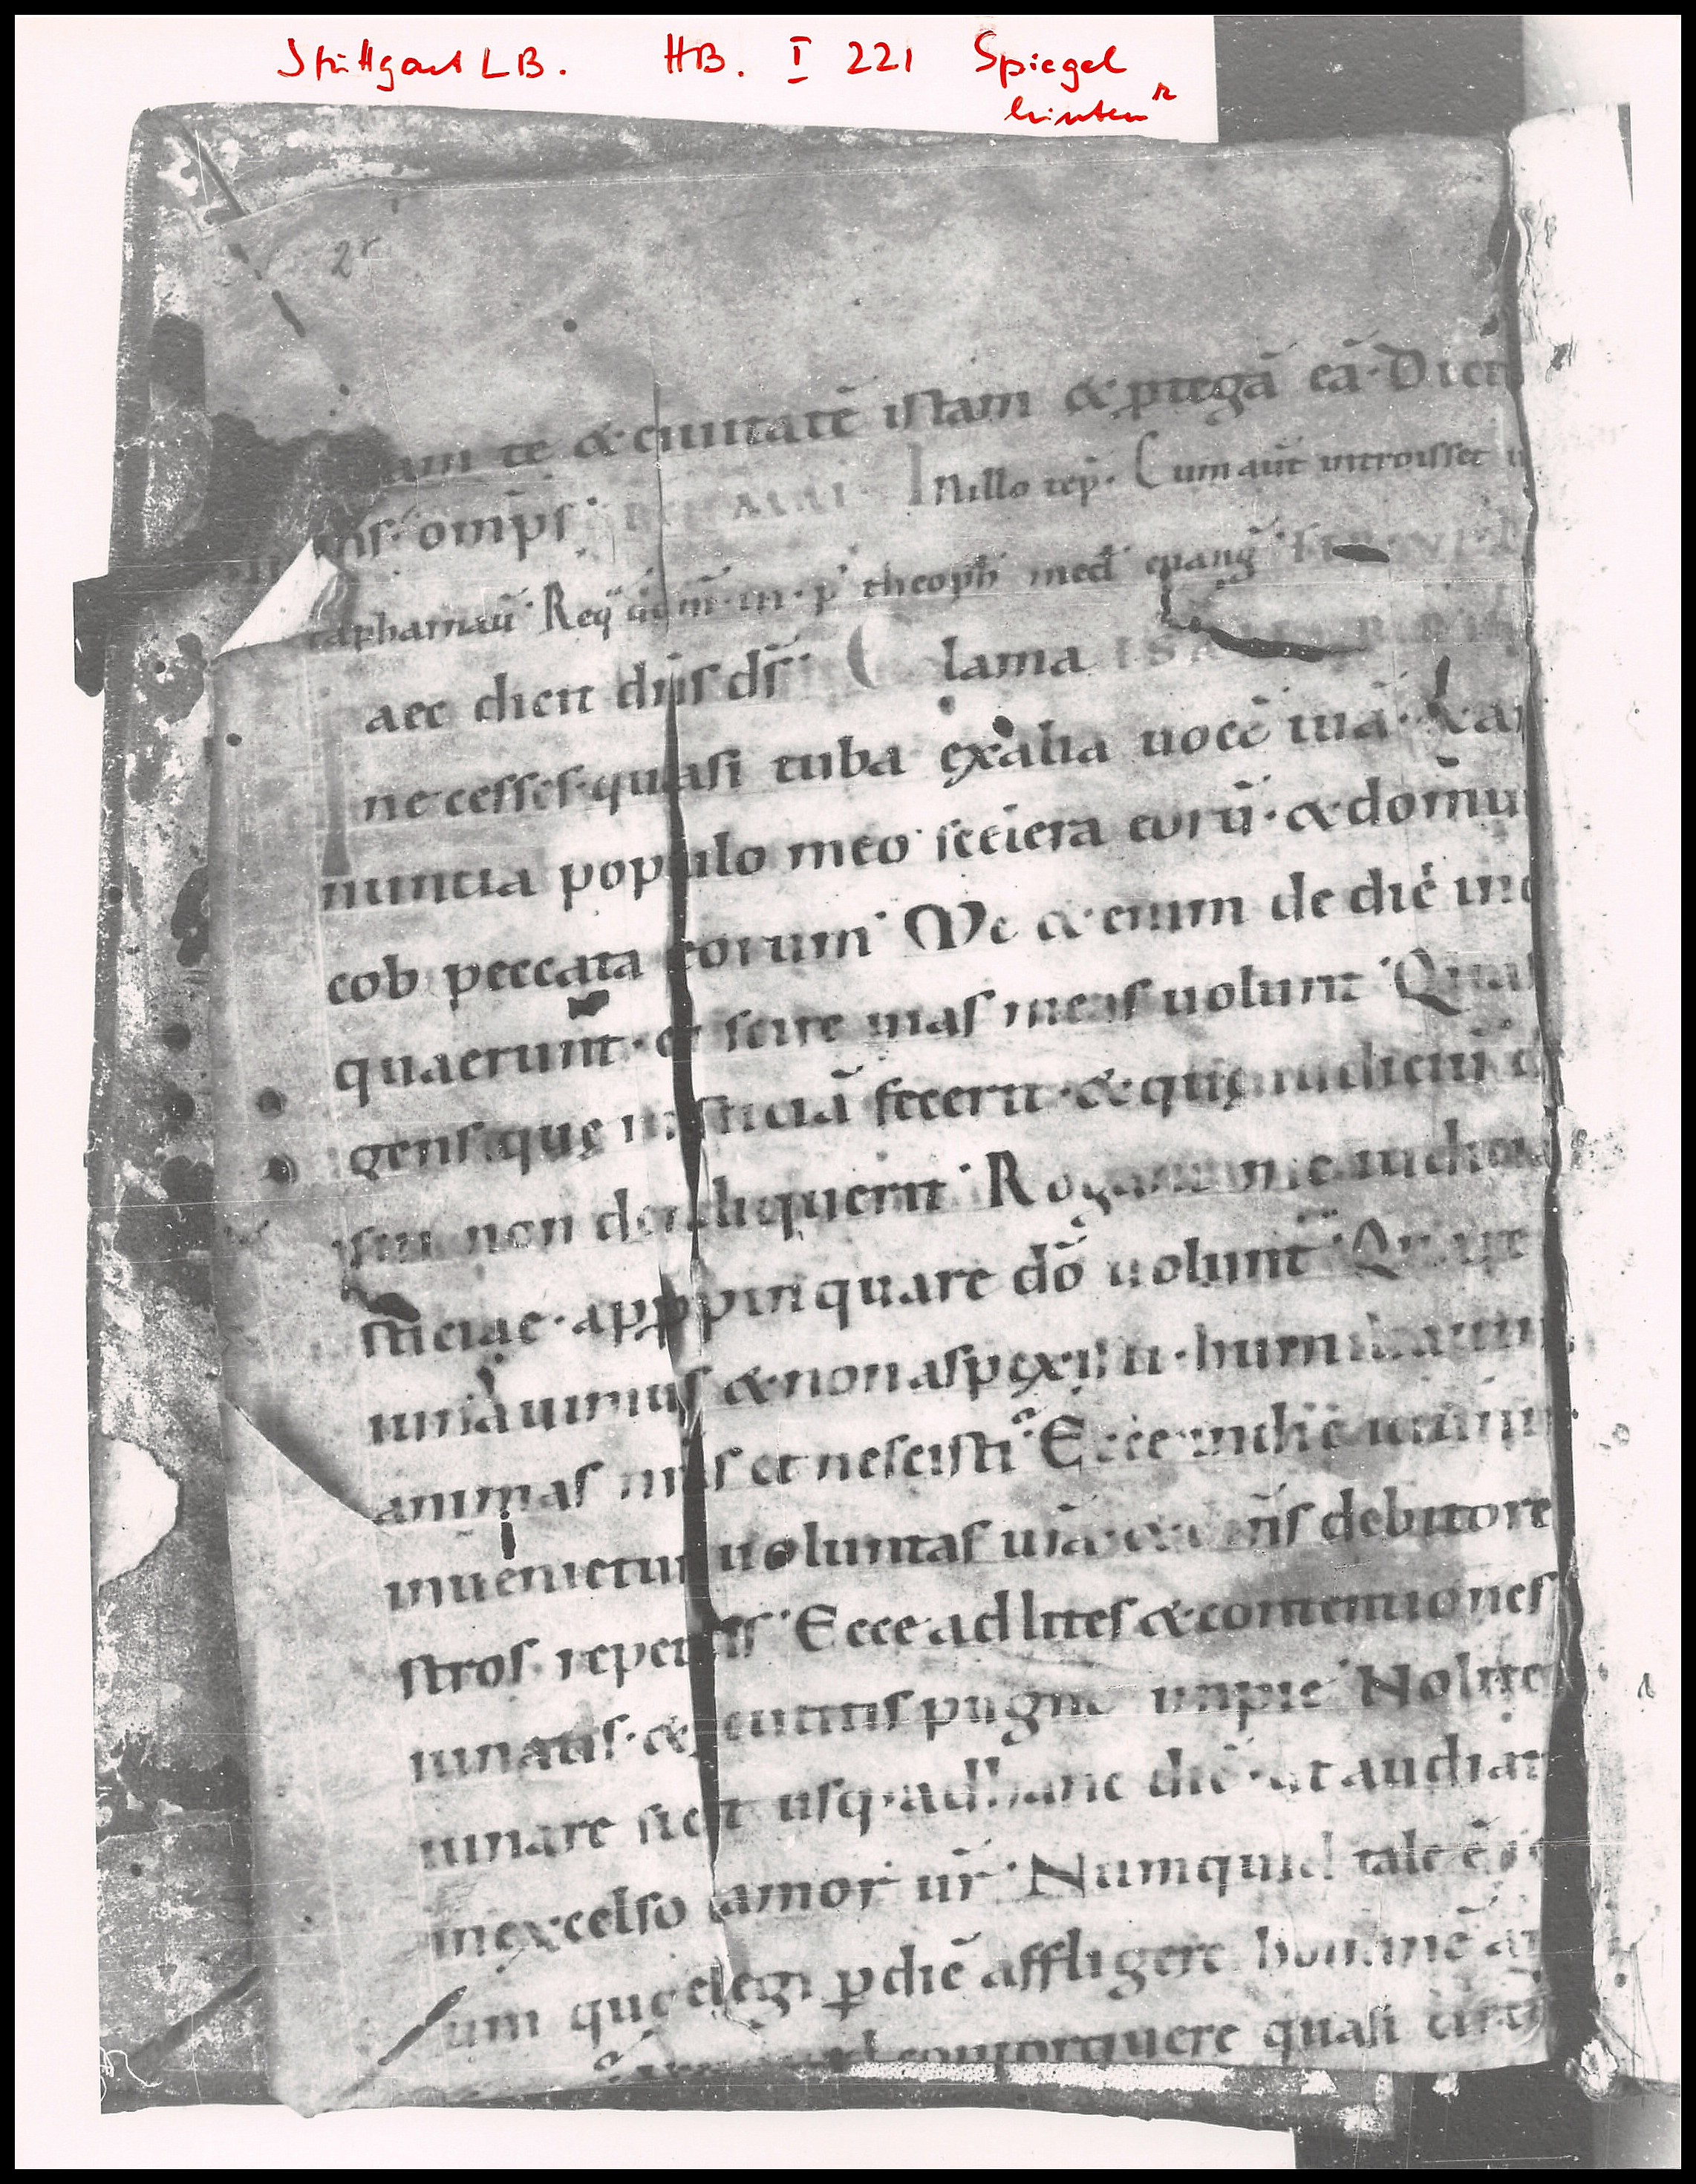 Stuttgart LB. HB. I 221 Spiegel
hinten r
2r
am te & ciuitatē istam & ꝓtegā eā · Dicit
oīnp̄s · In illo tēp̄ · Cum aūt introisset
capharnaū · Req̄ p̄ theoph med euang̃
aec dicit dn̄s ds̄ · Clama
ne cesses · quasi tuba exalta uocē tuā · & an
nuncia populo meo scelera eorū · & domui
cob peccata eorum · Me & enim de diē in d
quaerunt · et scire uias meas uolunt · Quasi
gens que iusticiā fecerit · & que iudiciū d
sui non dereliquerit · Rogant me iudicia
sticiae · appropinquare dō uolunt · Quare
iunauimus & non aspexisti · humiliauim
animas nr̄as et nescisti · Ecce in die ieiunii
inuenietur uoluntas ur̄a · & omn̄s debitore
stros repetitis · Ecce ad lites & contentiones
iunatis · & percutitis pugno impie · Nolite
iunare sicut usq · ad hanc diē · ut audiat
in excelso clamor ur̄ · Numquid tale ē ie
um que elegi ꝑ diē affligere hominē an
contorquere quasi circu